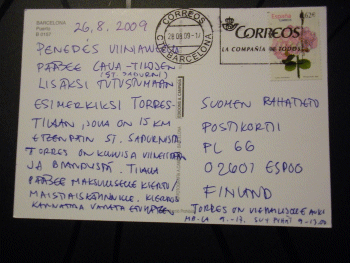 BARCELONA
Puerto
B 0157
26.8.2009
PENEDÉS VIINIALUE
PÄÄSEE CAVA-TILOJEN
(ST. SADURNI)
LISÄKSI TUTUSTUMAAN
ESIMERKIKSI TORRES-
TILAAN, JOKA ON 15 KM
ETEENPÄIN ST. SADURNISTA
TORRES ON KUULUISA VIINEISTÄÄN
JA BRANDYISTÄ. TILALLA
PÄÄSEE MAKSULLISELLE KIERTO/
MAISTIAISKÄYNNILLE. KIERROS
KANNATTAA VARATA ETUKÄTEEN
CORREOS
28.08.09
CTE BARCELONA
CORREOS
LA COMPAÑÍA DE TODOS
España
0,62€
SUOMEN RAHATIETO
POSTIKORTTI
PL 66
02601 ESPOO
FINLAND
TORRES ON VIERAILIJOILLE AUKI
MA-LA 9.-17. SUN PYHÄT 9-13.00